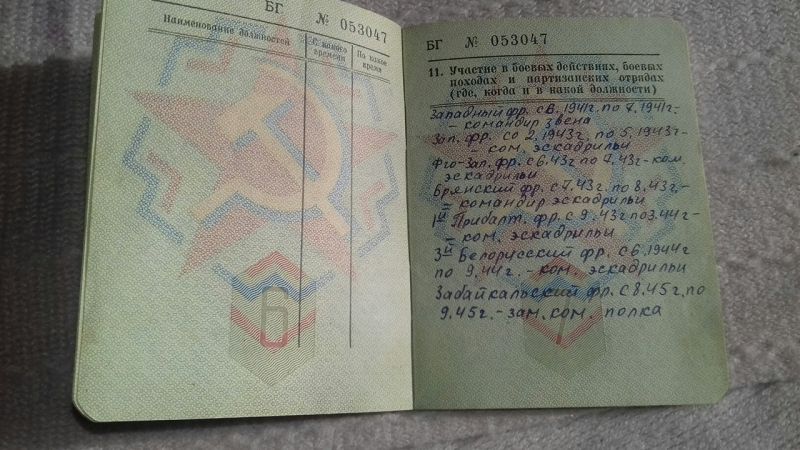 БГ № 053047
Наименование должностей
С какого
времени
По какое
время
6
БГ № 053047
11. Участие в боевых действиях, боевых
походах и партизанских отрядах
(где, когда и в какой должности)
Западный фр. с 6.1941г. по 7.1941г-
- командир звена
Зап. фр. со 2.1943г. по 5.1943г-
- ком. эскадрильи
Юго-Зап. фр. с 6.43г по 7.43г-ком.
эскадрильи
Брянский фр. с 7.43г. по 8.43г.-
- командир эскадрильи
1ый Прибалт. фр. с 9.43г по 3.44г-
- ком. эскадрильи
3й Белорусский фр. с 6.1944г
по 9.44г. - ком. эскадрильи
Забайкальский фр. с 8.45г. по
9.45г. - зам. ком. полка
7